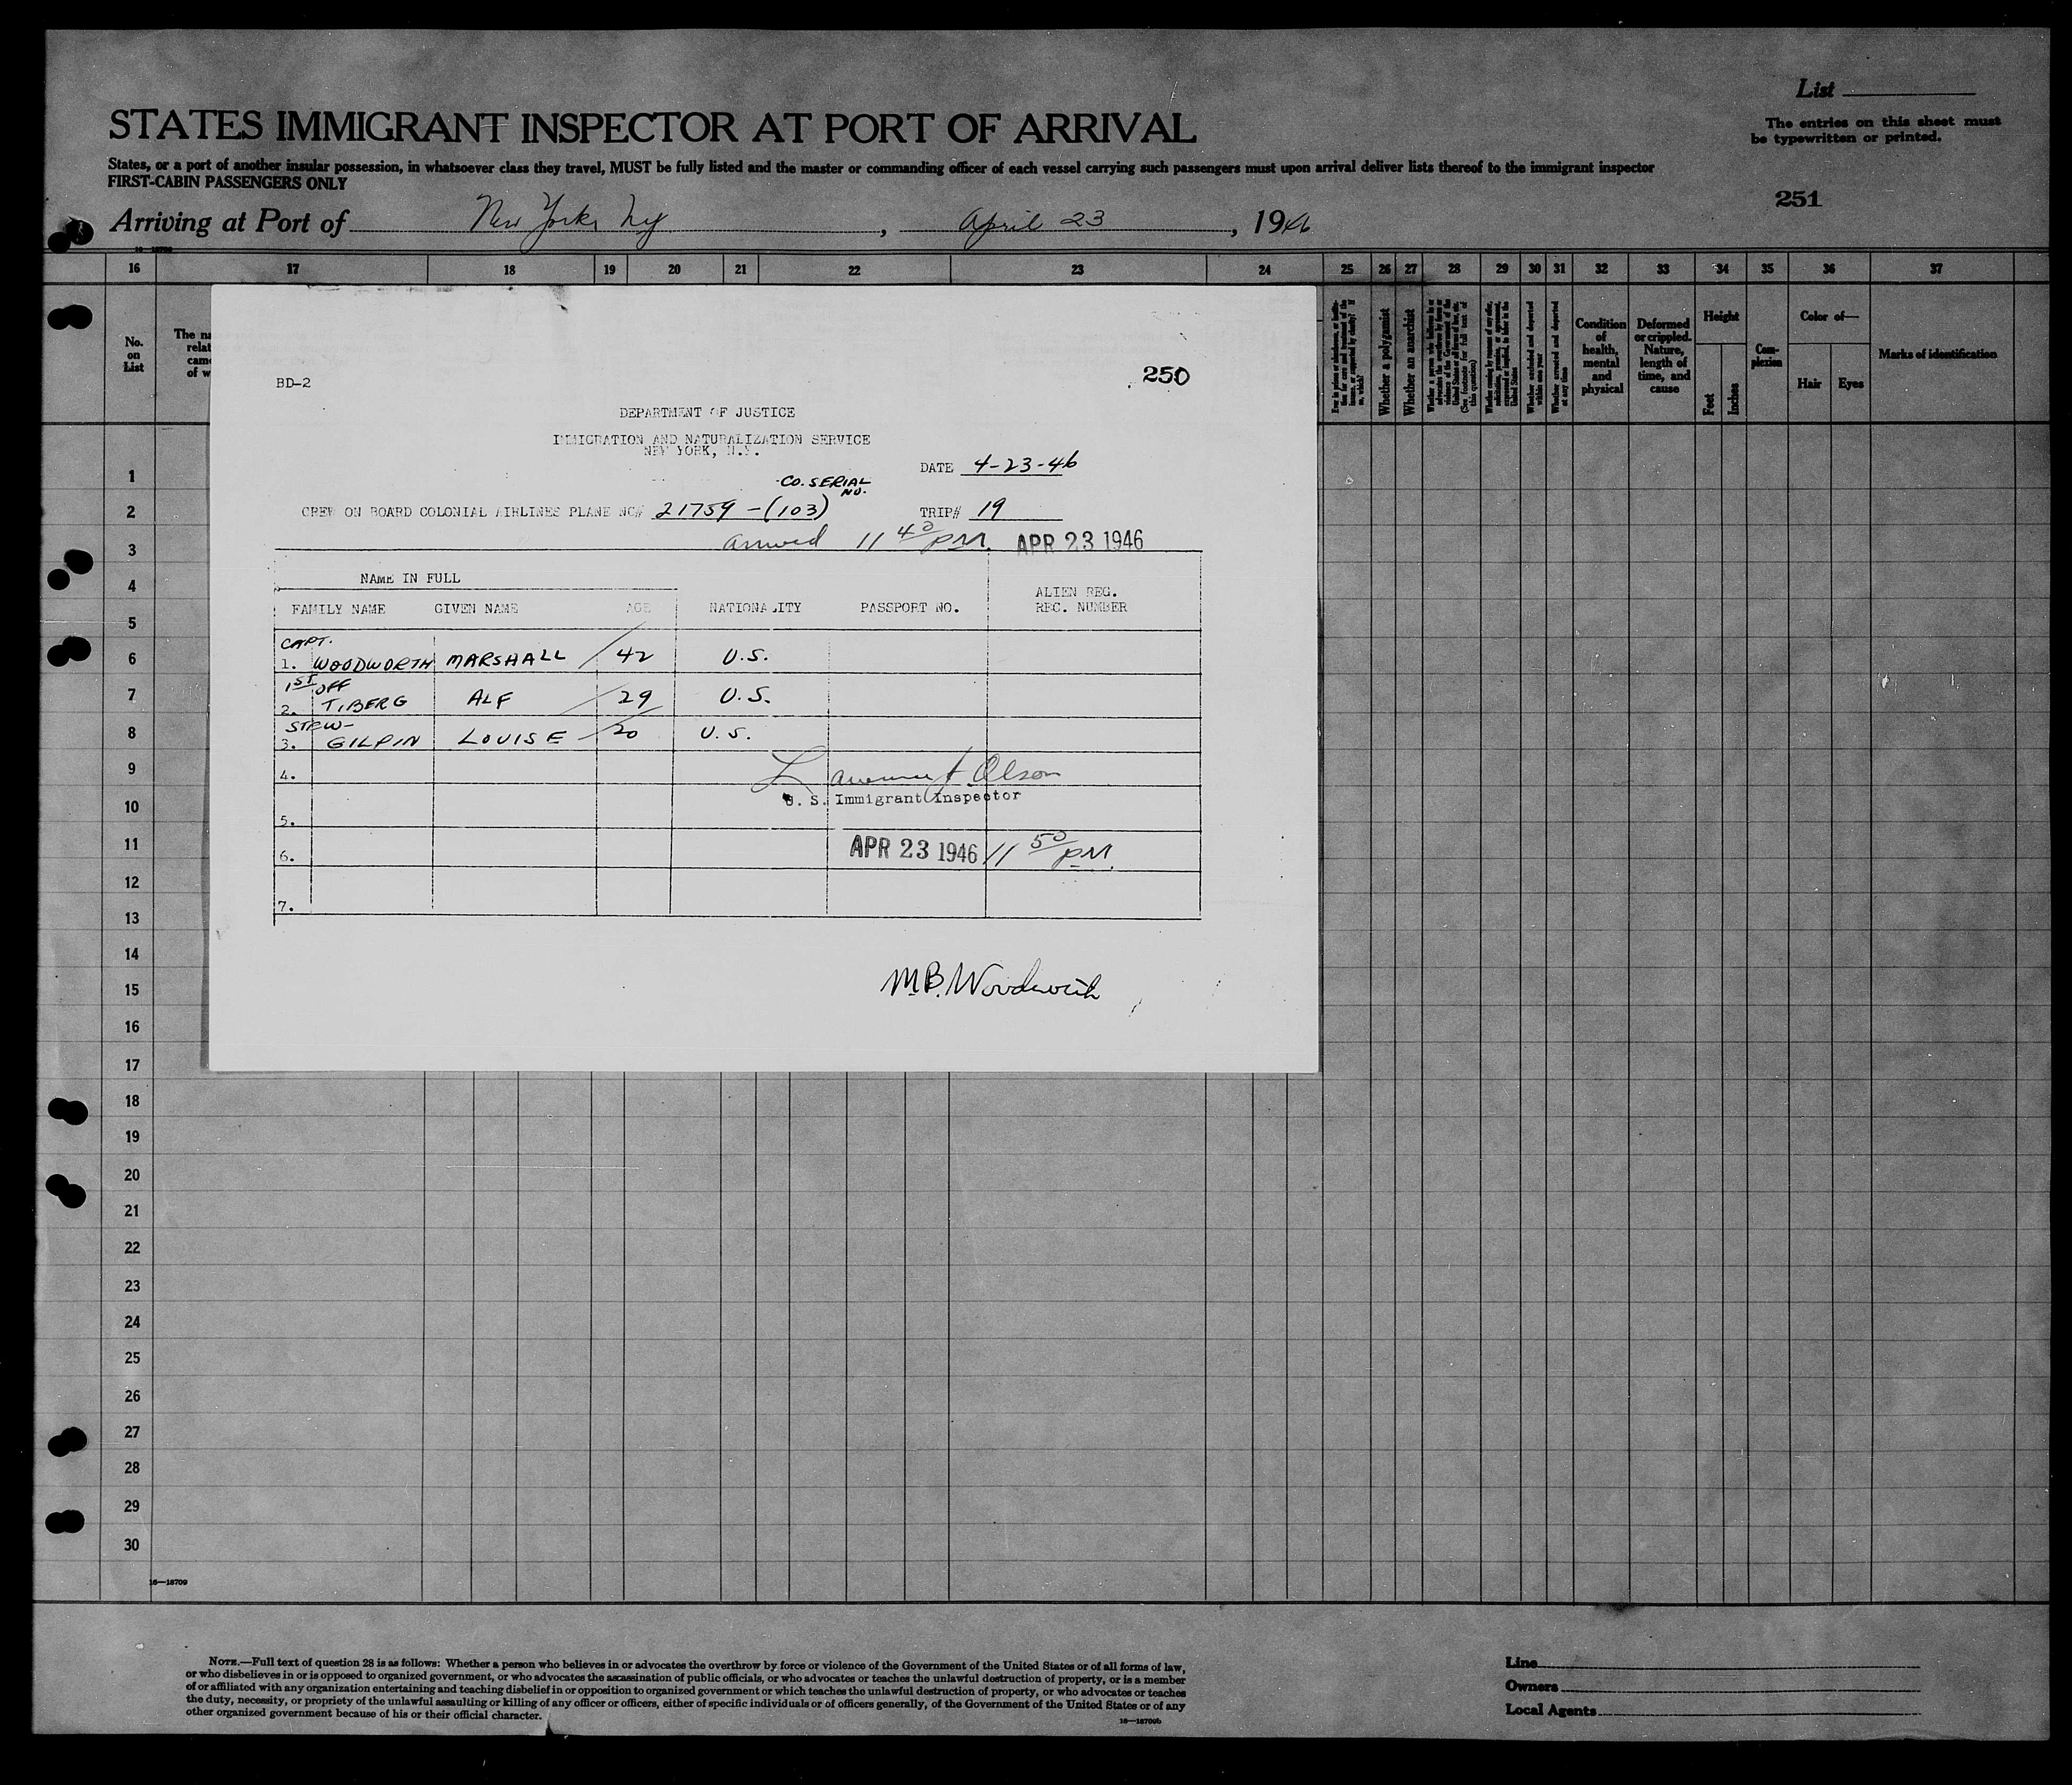 List
STATES IMMIGRANT INSPECTOR AT PORT OF ARRIVAL
The entries on this sheet must
be typewritten or printed.
States, or a port of another insular possession, in whatsoever class they travel, MUST be fully listed and the master or commanding officer of each vessel carrying such passengers must upon arrival deliver lists thereof to the immigrant inspector
FIRST-CABIN PASSENGERS ONLY
251
Arriving at Port of New York, Ny, April 23, 1946
16 17 18 19 20 21 22 23 24 25 26 27 28 29 30 31 32 33 34 35 36 37
No.
on
List
The na
relat
came
of w
Whether a polygamist
Whether an anarchist
Condition
of
health,
mental
and
physical
Deformed
or crippled.
Nature,
length of
time, and
cause
Height
Feet
Inches
Com-
plexion
Color of—
Hair
Eyes
Marks of identification
BD-2
250
DEPARTMENT OF JUSTICE
IMMIGRATION AND NATURALIZATION SERVICE
NEW YORK, N.Y.
DATE 4-23-46
CO. SERIAL
NO.
CREW ON BOARD COLONIAL AIRLINES PLANE NO# 21759-(103) TRIP# 19
arrived 11 40 PM. APR 23 1946
NAME IN FULL
FAMILY NAME GIVEN NAME AGE NATIONALITY PASSPORT NO. ALIEN REG.
REC. NUMBER
CAPT.
1. WOODWORTH MARSHALL 42 U.S.
1ST OFF
2. TIBERG ALF 29 U.S.
STEW-
3. GILPIN LOUISE 20 U.S.
4. Olson
U. S. Immigrant Inspector
5.
6. APR 23 1946 11 50 PM.
7.
M.B. Woodworth
1
2
3
4
5
6
7
8
9
10
11
12
13
14
15
16
17
18
19
20
21
22
23
24
25
26
27
28
29
30
16—18709
NOTE.—Full text of question 28 is as follows: Whether a person who believes in or advocates the overthrow by force or violence of the Government of the United States or of all forms of law,
or who disbelieves in or is opposed to organized government, or who advocates the assassination of public officials, or who advocates or teaches the unlawful destruction of property, or is a member
of or affiliated with any organization entertaining and teaching disbelief in or opposition to organized government or which teaches the unlawful destruction of property, or who advocates or teaches
the duty, necessity, or propriety of the unlawful assaulting or killing of any officer or officers, either of specific individuals or of officers generally, of the Government of the United States or of any
other organized government because of his or their official character.
16—18709b
Line
Owners
Local Agents